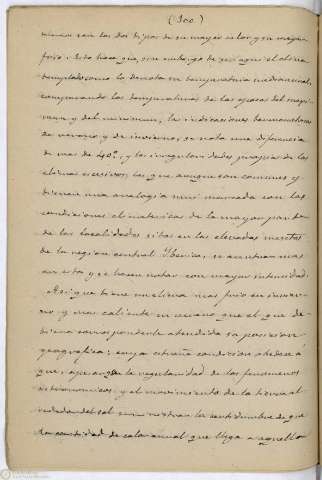 (300)
con los dos dias de su mayor calor y su mayor
frio. Esto hace que, sin embargo de ser aquel el clima
templado como lo denota su temperatura media anual,
comparando las temperaturas de las epocas del maxi-
mum y del minimum, las indicaciones termometricas
de verano y de invierno, se nota una diferencia
de mas de 40°, y las irregularidades propias de los
climas escesivos, las que aunque son comunes y
tienen una analogia muy marcada con las
condiciones climatericas de la mayor parte
de las localidades sitas en las elevadas mesetas
de la region central Iberica, se acentuan mas
en esta y se hacen notar con mayor intensidad.
Asi que tiene un clima mas frio en invier-
no y mas caliente en verano que el que de-
biera corresponderle atendida su posicion
geografica; cuya estraña condicion obedece á
que, apesar de la regularidad de los fenomenos
astronomicos y el movimiento de la tierra al
rededor del sol nos muestran la certidumbre de que
la cantidad de calor anual que llega á aquella